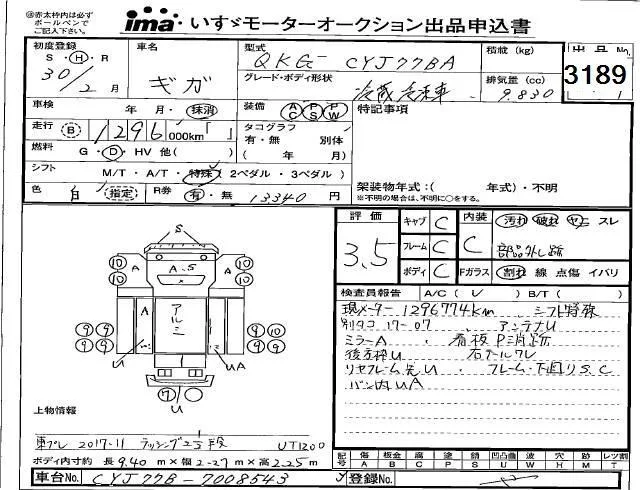 ◎赤太枠内は必ず
ボールペンで
ご記入下さい。
ima いすゞモーターオークション出品申込書
初度登録 車名 型式 積載(kg) 出品No.
S・H・R 30/2月 ギガ QKG-CYJ77BA
グレード・ボディ形状 冷蔵冷凍車 排気量(cc) 9.830 3189
車検 年 月・抹消 装備 AC PS PW 特記事項
走行 B 1296 000km「 」 タコグラフ 有・無 別体
燃料 G・D・HV 他( ) ( 年 月)
シフト M/T・A/T・特殊(2ペダル・3ペダル) 架装物年式:( 年式)・不明
色 白 指定 R券 有・無 13340 円 ※不明の場合は、不明に○をする。
評価 3.5 キャブ C 内装 C 汚れ 破れ ヤニ スレ
フレーム C 部品外し跡
ボディ C Fガラス 割れ 線 点傷 イバリ
検査員報告 A/C( レ ) B/T( )
現メーター1296774km シフト特殊
別タコ17-07 アンテナU
ミラーA 看板P消跡
後支枠U
リヤフレーム先U フレーム・下回りS.C
バン内UA
S
10 10 A A.S A 10 10
A アルミ
9 9 9 9 9 9 9 9
U UA
7 U
U
上物情報
東プレ 2017-11 ラッシング2段 UT1200
ボディ内寸約 長9.40m×幅2.27m×高2.25m
記号 傷A 板金B 腐C 塗P 錆S 凹凸曲U 波W 穴H 跡M レツ割T
車台No. CYJ77B-7008543 登録No.